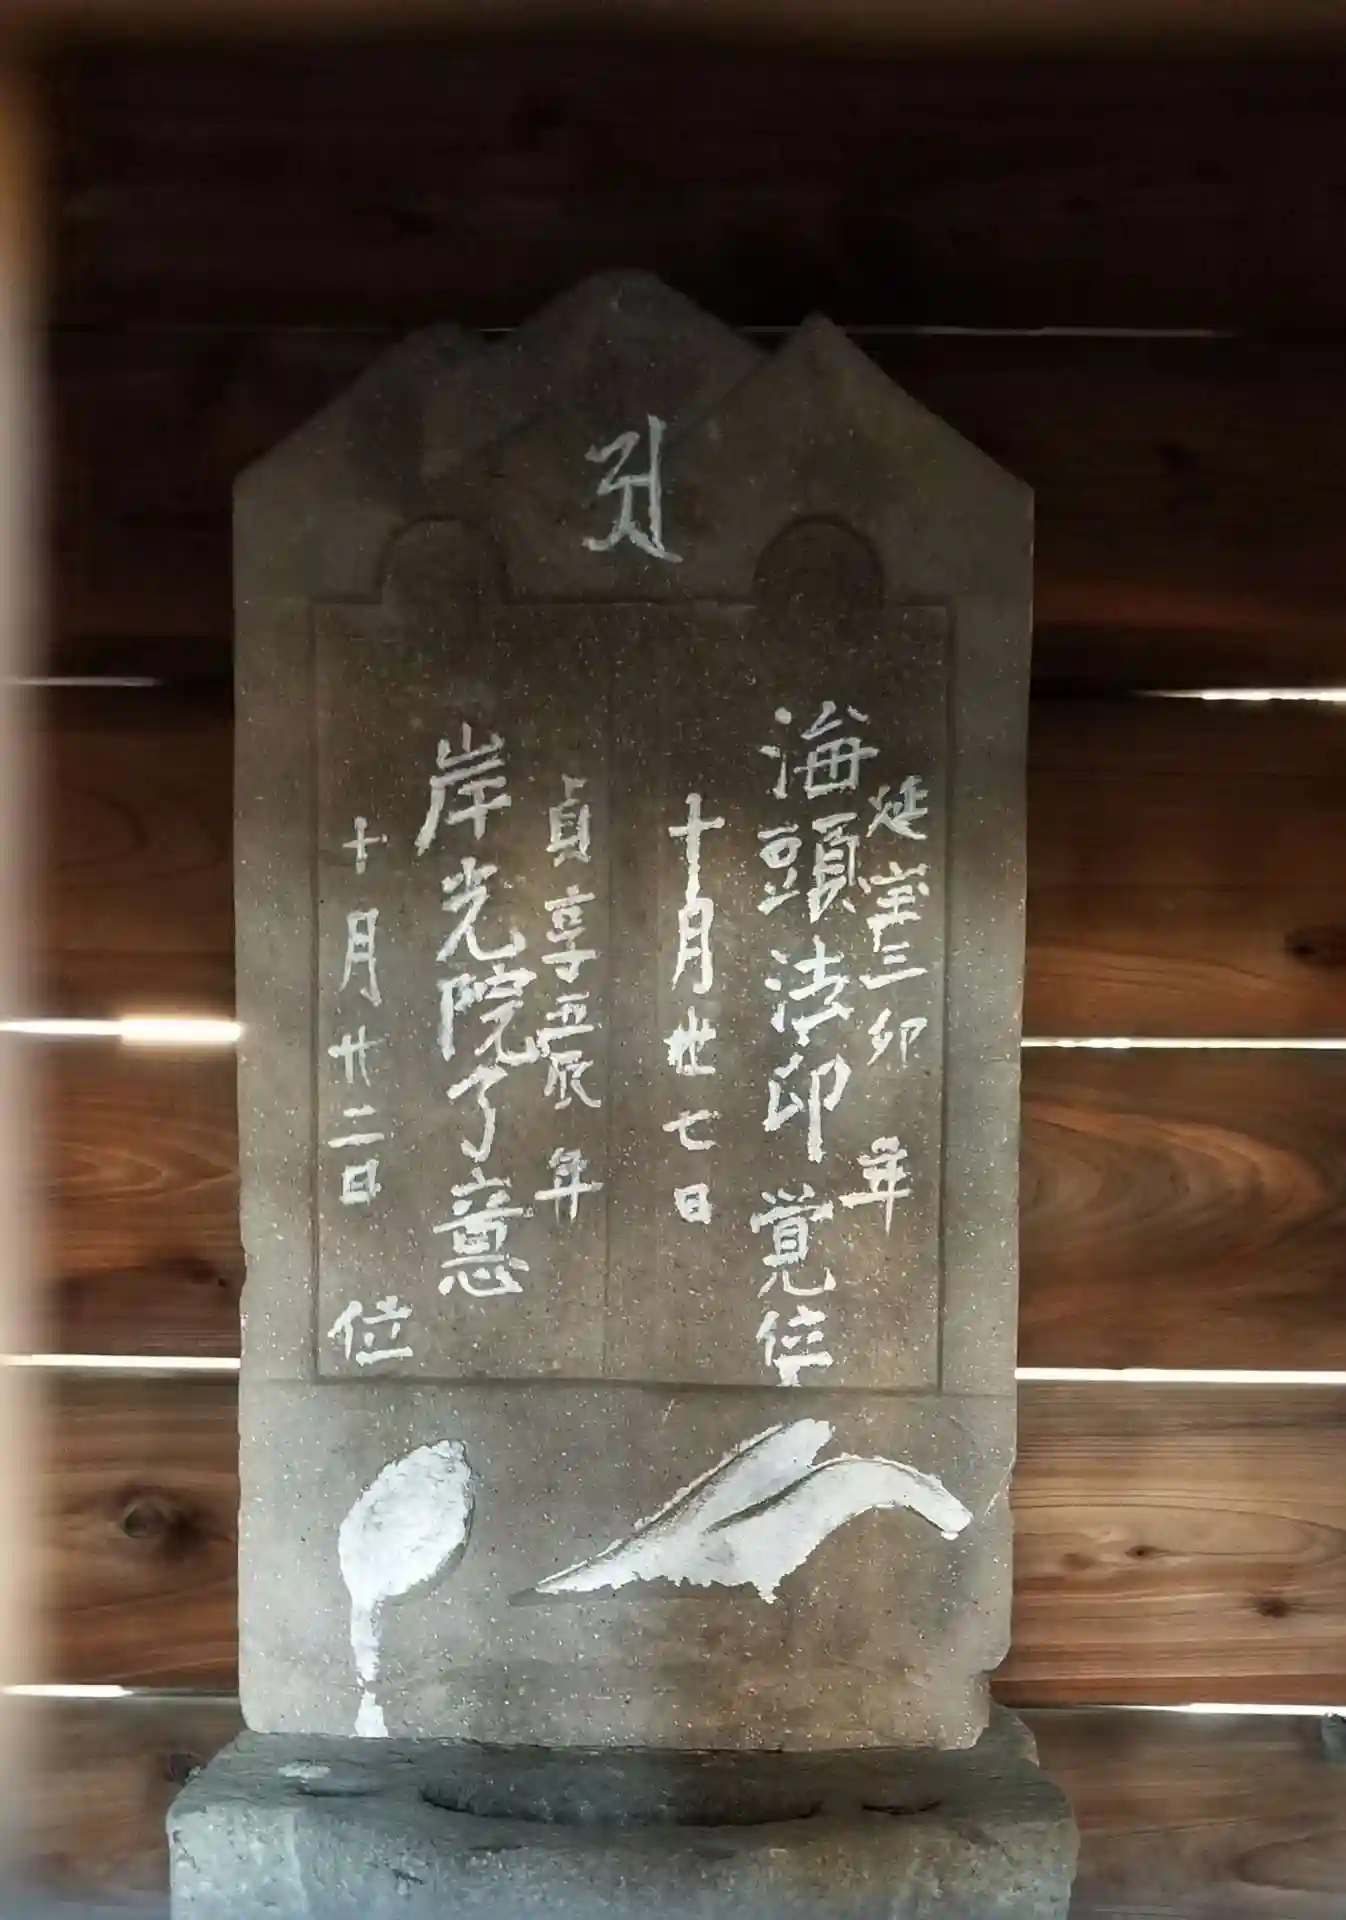 延宝三卯年
海頭法印覚位
十月廿七日
貞享五辰年
岸光院了意
十月廿二日
位